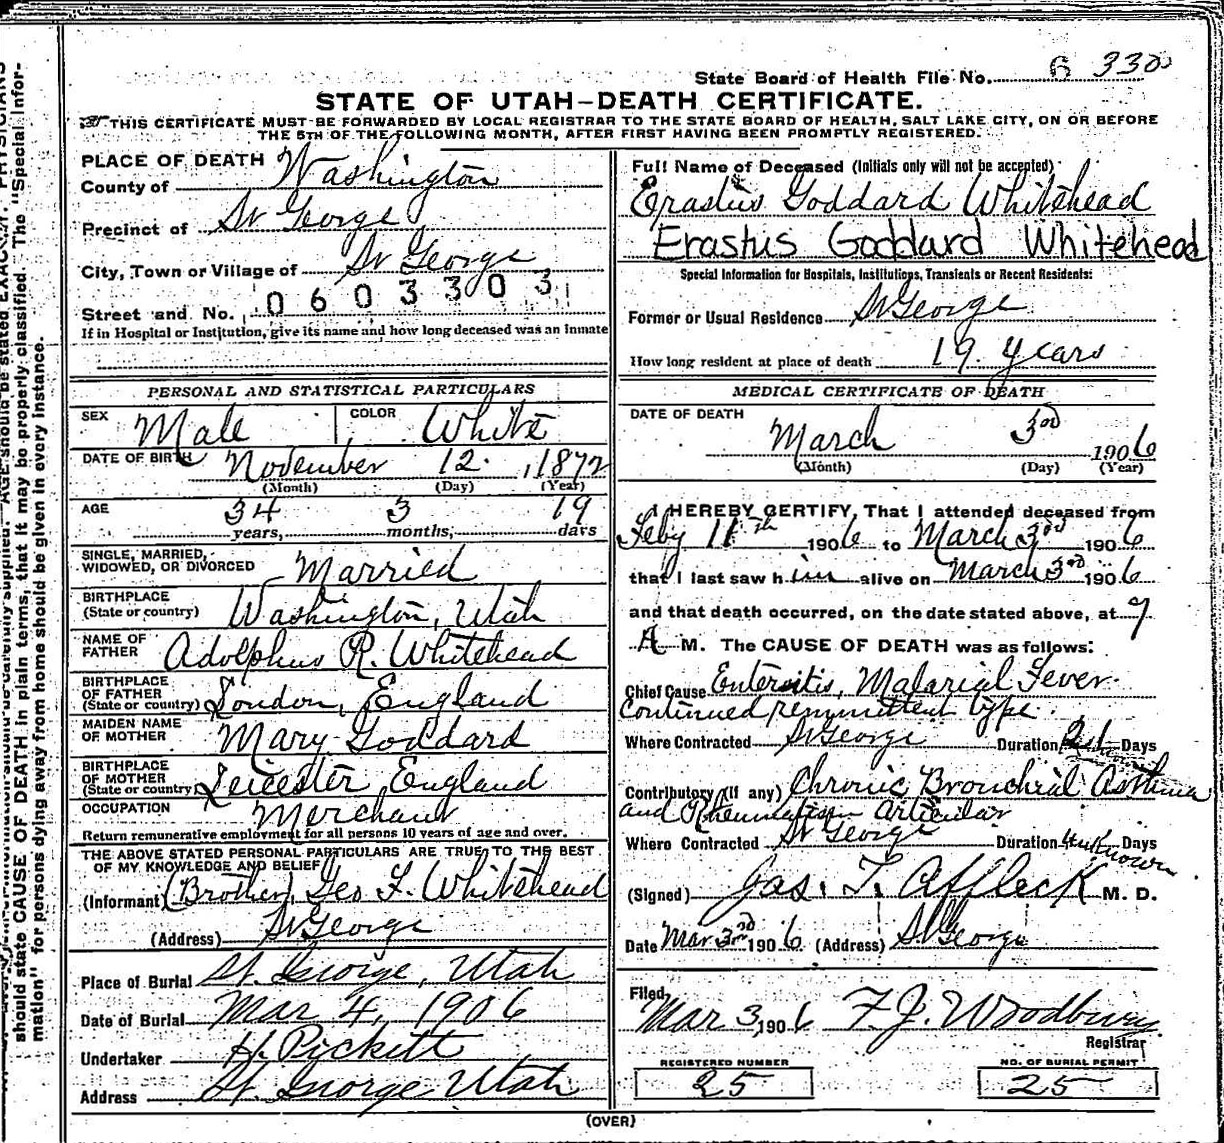 State Board of Health File No. 6 330
STATE OF UTAH—DEATH CERTIFICATE.
THIS CERTIFICATE MUST BE FORWARDED BY LOCAL REGISTRAR TO THE STATE BOARD OF HEALTH, SALT LAKE CITY, ON OR BEFORE
THE 5TH OF THE FOLLOWING MONTH, AFTER FIRST HAVING BEEN PROMPTLY REGISTERED.
PLACE OF DEATH
County of Washington
Precinct of St George
City, Town or Village of St George
0603303
Street and No.
If in Hospital or Institution, give its name and how long deceased was an inmate
PERSONAL AND STATISTICAL PARTICULARS
SEX Male COLOR White
DATE OF BIRTH November 12. 1872
(Month) (Day) (Year)
AGE 34 3 19
years, months, days
SINGLE, MARRIED,
WIDOWED, OR DIVORCED Married
BIRTHPLACE
(State or country) Washington, Utah
NAME OF
FATHER Adolphus R. Whitehead
BIRTHPLACE
OF FATHER
(State or country) London, England
MAIDEN NAME
OF MOTHER Mary Goddard
BIRTHPLACE
OF MOTHER
(State or country) Leicester England
OCCUPATION Merchant
Return remunerative employment for all persons 10 years of age and over.
THE ABOVE STATED PERSONAL PARTICULARS ARE TRUE TO THE BEST
OF MY KNOWLEDGE AND BELIEF
(Informant) (Brother) Geo F. Whitehead
(Address) St George
Place of Burial St. George, Utah
Date of Burial Mar 4, 1906
Undertaker H. Pickett
Address St. George Utah
Full Name of Deceased (Initials only will not be accepted)
Erastus Goddard Whitehead
Erastus Goddard Whitehead
Special Information for Hospitals, Institutions, Transients or Recent Residents:
Former or Usual Residence St George
How long resident at place of death 19 years
MEDICAL CERTIFICATE OF DEATH
DATE OF DEATH
March 3rd 1906
(Month) (Day) (Year)
I HEREBY CERTIFY, That I attended deceased from
Feby 11th 1906 to March 3rd 1906
that I last saw him alive on March 3rd 1906
and that death occurred, on the date stated above, at 7
A M. The CAUSE OF DEATH was as follows:
Chief Cause Enteritis, Malarial Fever
Continued remmittent type.
Where Contracted St George Duration 21 Days
Contributory (if any) Chronic Bronchial Asthma
and Rheumatism Articular
Where Contracted St George Duration Unknown Days
(Signed) Jas. T. Affleck M. D.
Date Mar 3rd 1906 (Address) St George
Filed, Mar 3, 1906 F. J. Woodbury
Registrar
REGISTERED NUMBER NO. OF BURIAL PERMIT
25 25
(OVER)
should state CAUSE OF DEATH in plain terms, that it may be properly classified. The "Special Infor-
mation" for persons dying away from home should be given in every instance.